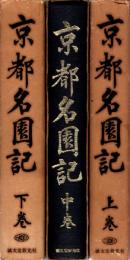 京都名園記
上巻
誠文堂新光社
京都名園記
中巻
誠文堂新光社
京都名園記
下巻
誠文堂新光社